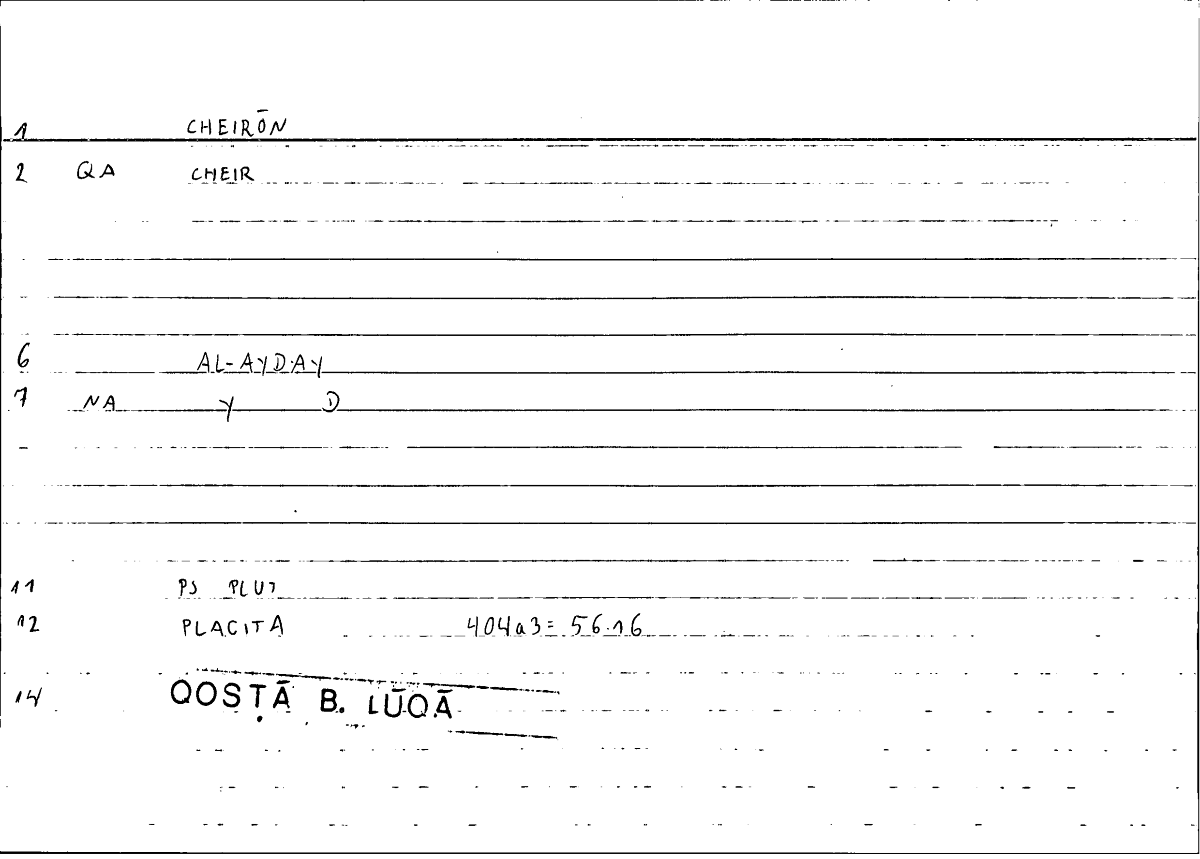 1 CHEIRŌN
2 QA CHEIR
6 AL-AYDAY
7 NA Y D
11 PS PLUT
12 PLACITA 404a3 = 56.16
14 QOSṬĀ B. LŪQĀ